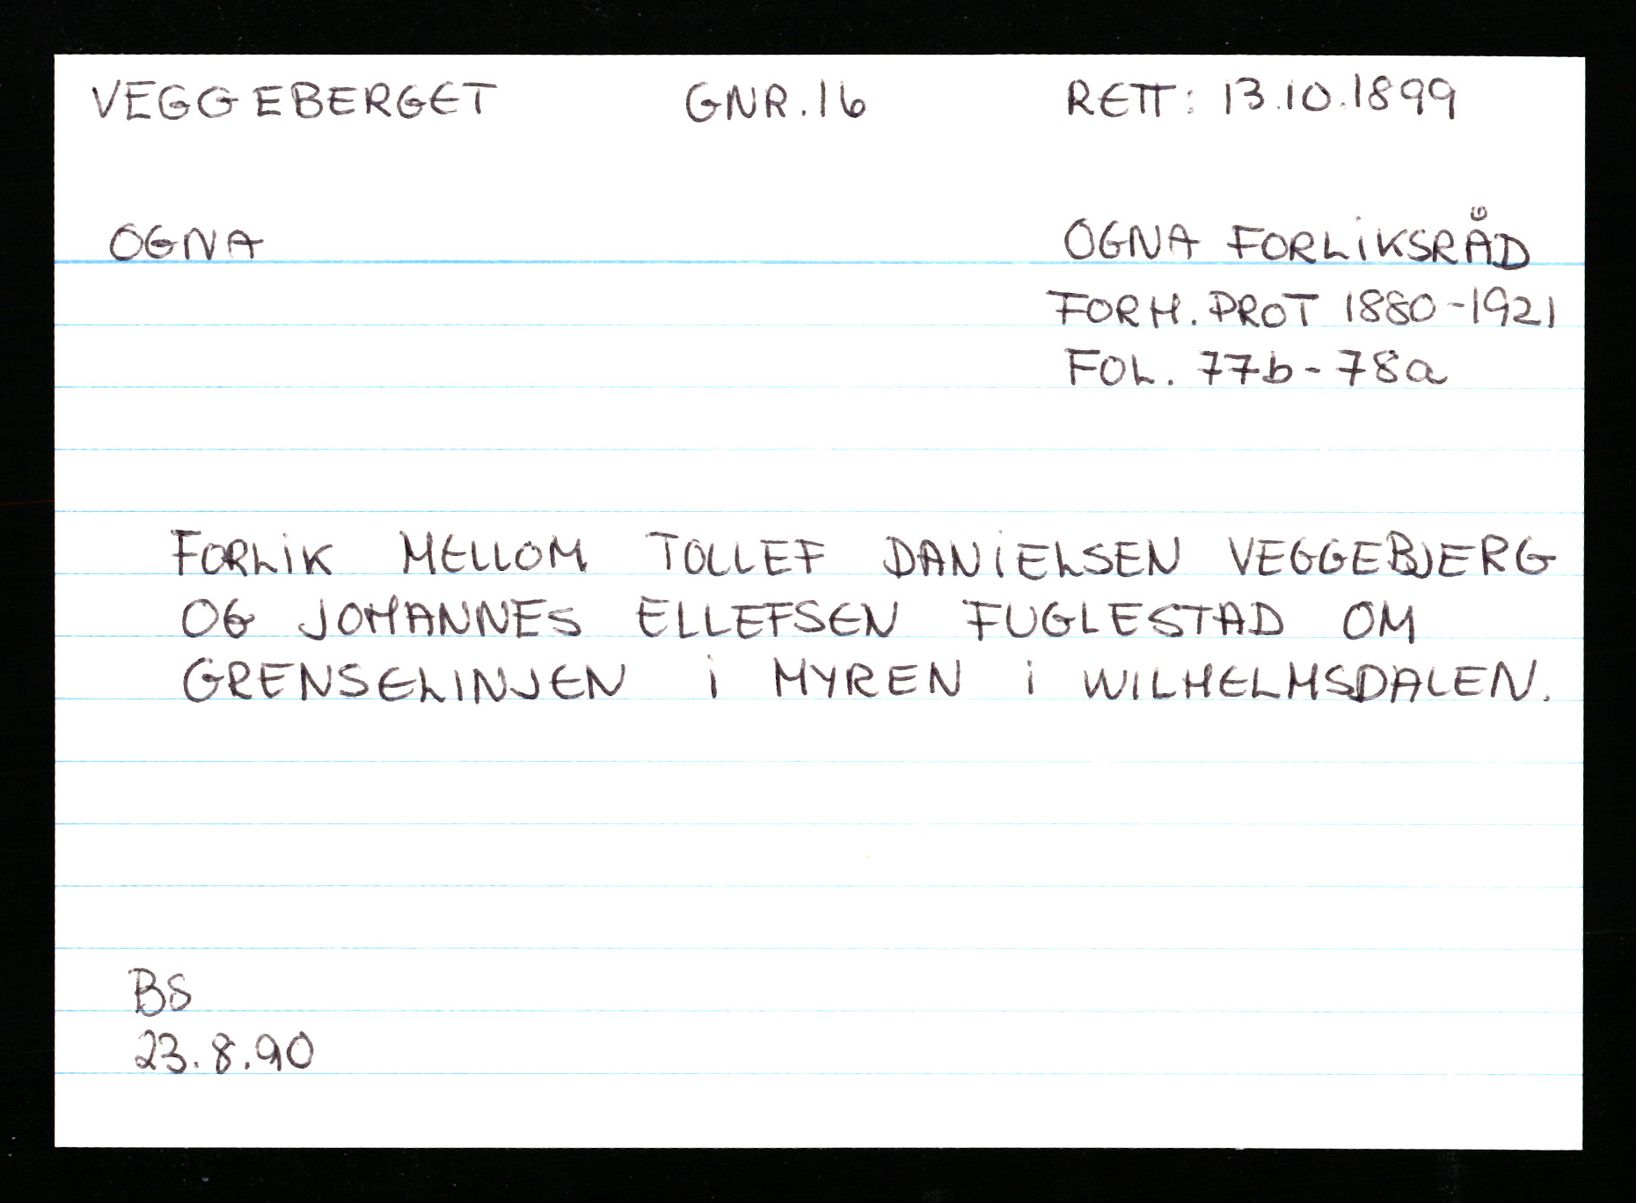 VEGGEBERGET GNR.16 RETT: 13.10.1899
OGNA OGNA FORLIKSRÅD
FORH. PROT 1880-1921
FOL. 77b-78a
FORLIK MELLOM TOLLEF DANIELSEN VEGGEBJERG
OG JOHANNES ELLEFSEN FUGLESTAD OM
GRENSELINJEN i MYREN i WILHELMSDALEN.
BS
23.8.90